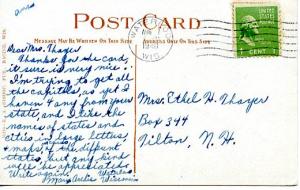 POST CARD
MESSAGE MAY BE WRITTEN ON THIS SIDE
WIS.
1 CENT 1
Dear Mrs. Thayer
Thanks for the card
it sure is very nice.
I'm trying to get all
the capitals, as yet I
haven't any from your
state, and I like the
names of states and
cities in large letters
& maps of the different
states, but any kind
will be appreciated.
Write again
Wisconsin
Mrs. Ethel H. Thayer
Box 344
Tilton, N. H.